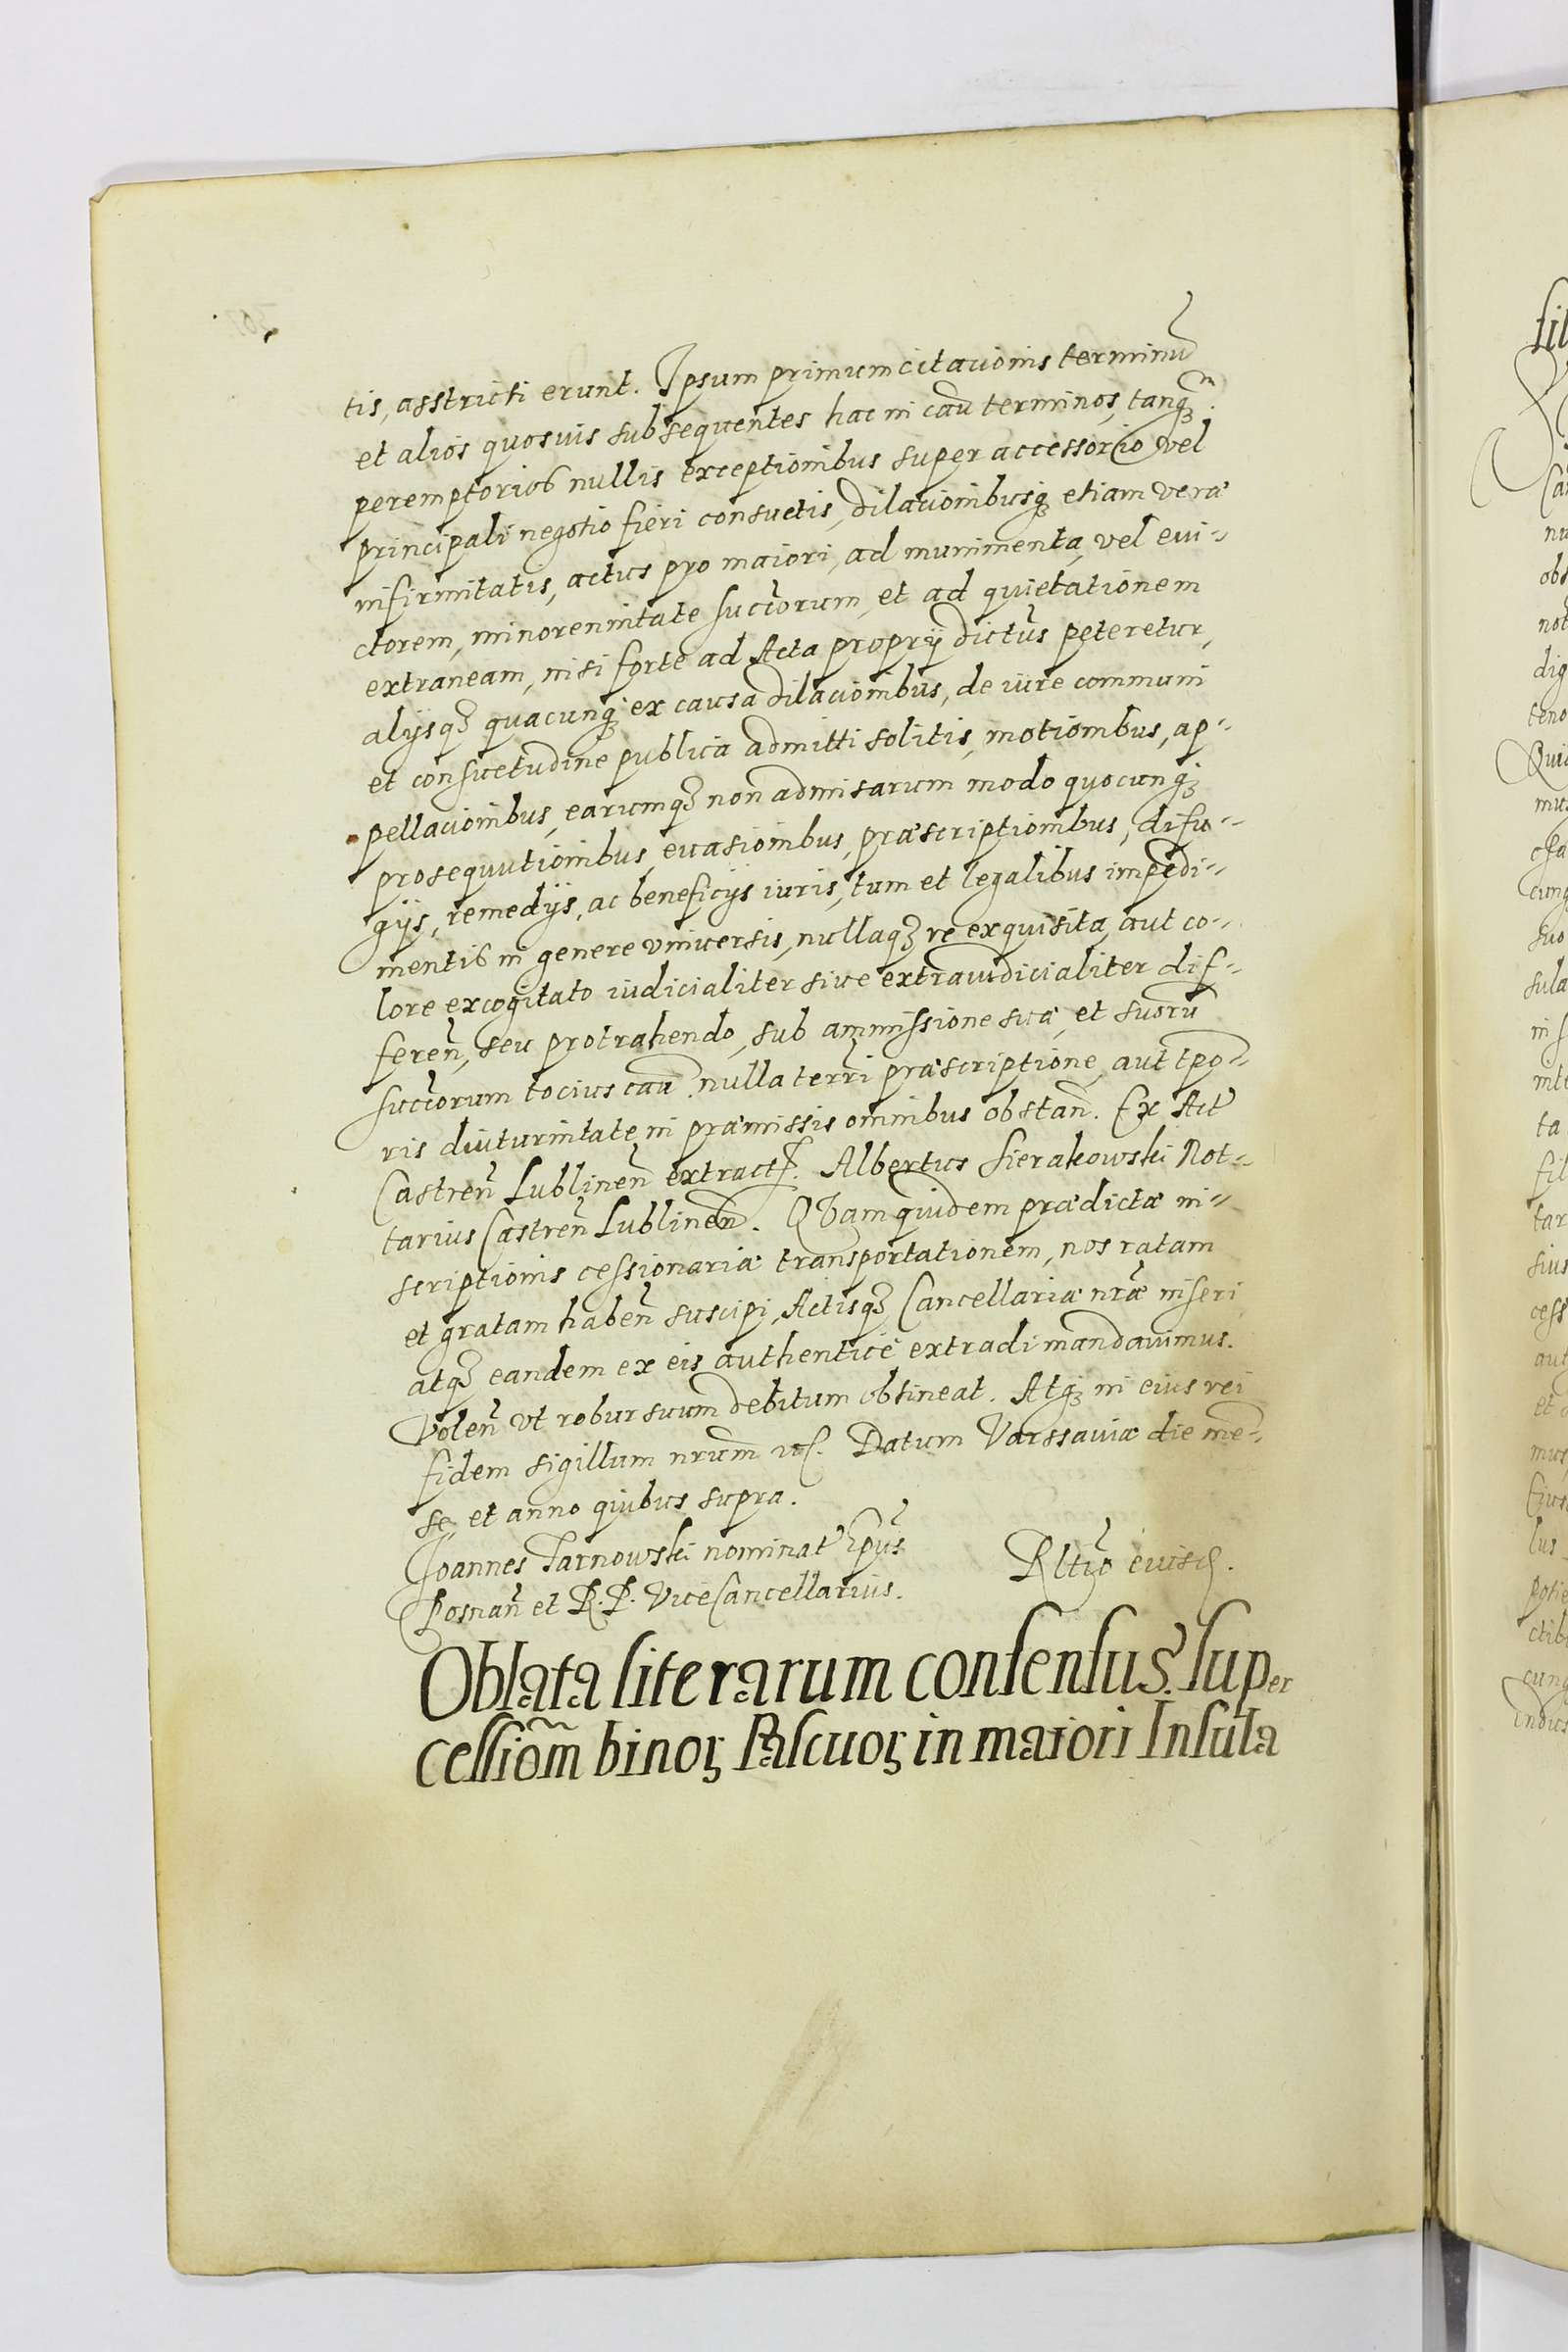 tis, asstricti erunt. Ipsum primum citacionis terminũ
et alios quosvis subsequentes hac in caũ terminos, tanqȝ
peremptorios nullis exceptionibus super accessorio vel
principali negotio fieri consuetis, dilacionibusqȝ etiam veræ
infirmitatis, actus pro maiori, ad munimenta, vel evi-
ctorem, minorennitate succorum, et ad quietationem
extraneam, nisi forte ad Acta proprÿ dictus peteretur,
alÿsqȝ quacunqȝ ex causa dilacionibus, de iure communi
et consuetudine publica admitti solitis, motionibus, ap-
pellacionibus, earumqȝ non admisarum modo quocunqȝ
prosequutionibus, evasionibus, præscriptionibus, difu-
gÿs, remedÿs, ac beneficÿs iuris, tum et legalibus impedi-
mentis in genere vniversis, nullaqȝ re exquisita, aut co-
lore excogitato iudicialiter sive extraiudicialiter dif-
feren̄, seu protrahendo, sub ammissione sua, et suorũ
succorum tocius caũ. nulla terri præscriptione, aut tpo-
ris diuturnitate in præmissis omnibus obstan̄. Ex Act
Castren̄ Lublinen̄ extract. Albertus Sierakowski Not-
tarius Castren̄ Lublinen̄. Quam quidem prædictæ in-
scriptionis cessionariæ transportationem, nos ratam
et gratam haben̄ suscipi, Actisqȝ Cancellariæ nr̃æ inseri
atqȝ eandem ex eis authenticè extradi mandavimus.
Volen̄ vt robur suum debitum obtineat. Atqȝ in eius rei
fidem sigillum nrũm etc. Datum Varssaviæ die men-
se, et anno quibus supra.
Joannes Tarnowski nominat Epũs
Posnan̄ et R. P. ViceCancellarius.
Rltio eiusd.
Oblata literarum consensus super
cessiom̃ binoꝝ Pascuoꝝ in maiori Insula